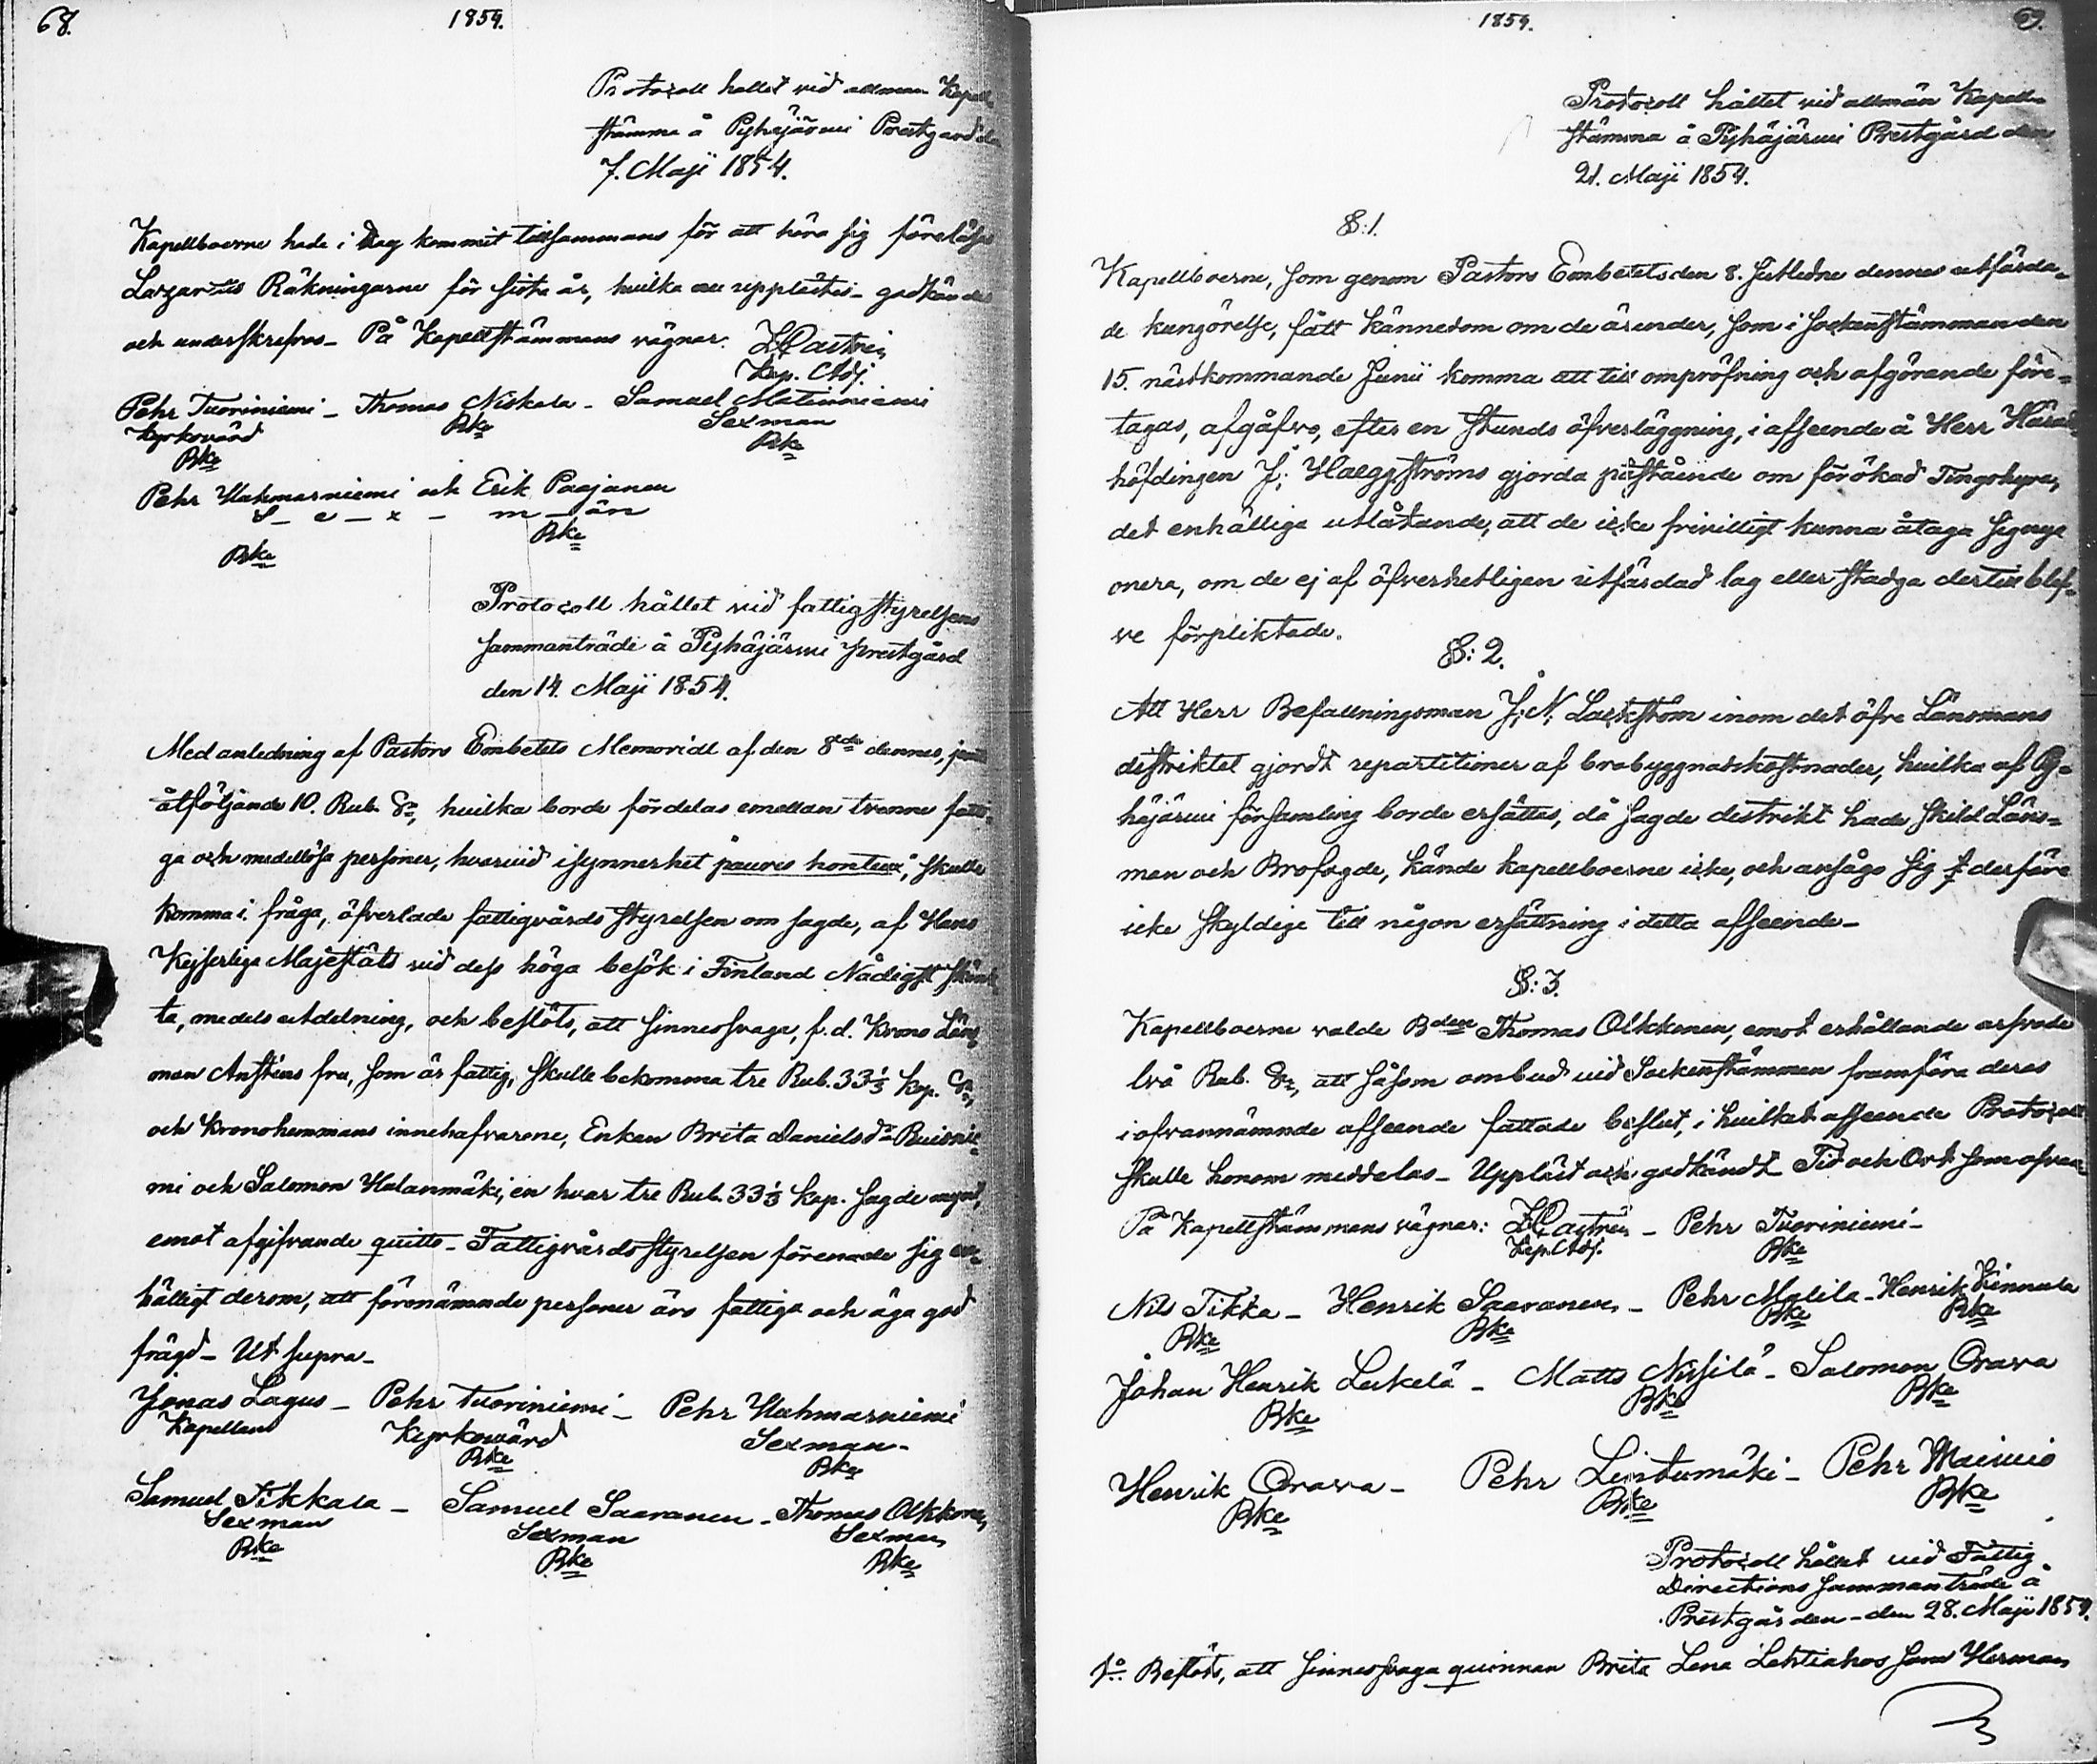 68.
1854.
Protocoll hållet vid allmän Kapell-
stämma å Pyhäjärvi Prestgård den
7. Maji 1854.
Kapellboerne hade i dag kommit tillsammans för att höra sig föreläsas
Lazaretts Räkningarne för sista år, hvilka nu upplästes - godkändes
och underskrefvos - På Kapellstämmans vägnar. Z Castrén
Kap. Adj.
Pehr Tuoriniemi - Thomas Niskala - Samuel Matiniemi
Kyrkovärd Bke Sexman
Bke Bke
Pehr Hahmarniemi och Erik Paajanen
S - e - x - m - än
Bke Bke
Protocoll hållet vid fattigstyrelsens
sammanträde å Pyhäjärvi prestgård
den 14. Maji 1854.
Med anledning af Pastors Embetets Memorial af den 8de dennes, jemte
åtföljande 10. Rub. Sr, hvilka borde fördelas emellan trenne fatti-
ga och medellösa personer, hvarvid isynnerhet "pauvres honteux", skulle
komma i fråga, öfverlade fattigvårds styrelsen om sagde, af Hans
Kejserliga Majestäts vid dess höga besök i Finland Nådigst skänk-
ta, medels utdelning, och beslöts, att sinnessvaga, f.d. Krono Läns
man Ansténs fru, som är fattig, skulle bekomma tre Rub. 33⅓ kop. Sr,
och kronohemmans innehafvarene, Enkan Brita Danielsdr Ruisnie-
mi och Salomon Halanmäki, en hvar tre Rub. 33⅓ kop. sagde mynt,
emot afgifvande quitto - Fattigvårdsstyrelsen förenade sig en-
hälligt derom, att förenämnde personer äro fattiga och äga god
frägd - Ut supra -
Jonas Lagus - Pehr Tuoriniemi - Pehr Hahmarniemi
Kapellan Kyrkovärd Sexman -
Bke Bke
Samuel Tikkala - Samuel Saaranen - Thomas Olkkonen
Sexman Sexman Sexman
Bke Bke Bke
1854.
69.
Protocoll hållet vid allmän Kapell-
stämma å Pyhäjärvi Prestgård den
21. Maji 1854.
§: 1.
Kapellboerne, som genom Pastors Embetets den 8. sistledne dennes utfärda-
de kungörelse, fått kännedom om de ärender, som i sockenstämman den
15. nästkommande Junii komma att till ompröfning och afgörande före-
tagas, afgåfvo, efter en stunds öfverläggning, i afseende å Herr Härads-
höfdingen J: Haeggströms gjorda påstående om förökad Tingshyra,
det enhälliga utlåtande, att de icke frivilligt kunna åtaga sig nya
onera, om de ej af öfverhetligen utfärdad lag eller stadga dertill blef-
ve förpliktade.
§: 2.
Att Herr Befallningsman J: N: Lackström inom det öfre Länsmans
distriktet gjordt repartitioner af brobyggnadskostnader, hvilka af Py-
häjärvi församling borde ersättas, då sagde distrikt hade skild Läns-
man och Brofogde, kände kapellboerne icke, och ansågo sig derföre
icke skyldige till någon ersättning i detta afseende -
§: 3.
Kapellboerne valde Bden Thomas Olkkonen, emot erhållande arfvode
två Rub. Sr, att såsom ombud vid Sockenstämman framföra deras
i ofvannämnde afseende fattade beslut, i hvilket afseende Protocoll
skulle honom meddelas - Uppläst och godkändt Tid och Ort som ofvan -
På Kapellstämmans vägnar: Z Castrén - Pehr Tuoriniemi -
Kap. Adj. Bke
Nils Tikka - Henrik Saaranen - Pehr Mylilä - Henrik Kinnula
Bke Bke Bke Bke
Johan Henrik Leikelä - Matts Nissilä - Salomon Orava
Bke Bke Bke
Henrik Orava - Pehr Lintumäki - Pehr Mainio
Bke Bke Bke
Protocoll hållet vid Fattig
Directions sammanträde å
Prestgården - den 28. Maji 1854.
1o Beslöts, att sinnessvaga quinnan Brita Lena Lehtiahos son Herman